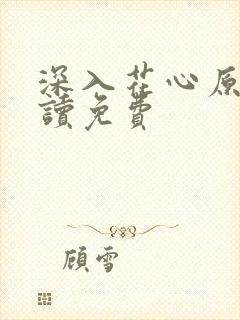 深入花心原
讀免費
顧雪